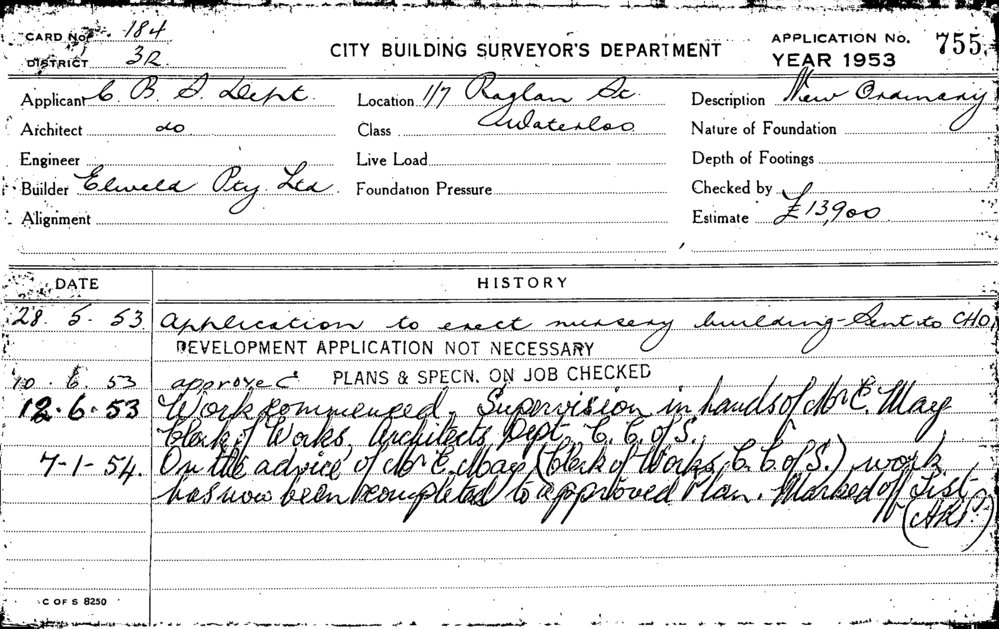 CARD No. 184
DISTRICT 32
CITY BUILDING SURVEYOR'S DEPARTMENT
APPLICATION No. 755
YEAR 1953
Applicant C. B. S. Dept.
Location 1/7 Raglan St.
Waterloo
Description New Ordinary
Architect do
Class
Nature of Foundation
Engineer
Live Load
Depth of Footings
Builder Elweld Pty Ltd.
Foundation Pressure
Checked by
Alignment
Estimate £13,900
DATE HISTORY
28. 5. 53 Application to erect nursery building - Sent to CHO
DEVELOPMENT APPLICATION NOT NECESSARY
10. 6. 53 approved PLANS & SPECN. ON JOB CHECKED
12. 6. 53 Work commenced. Supervision in hands of Mr E. May
Clerk of Works, Architects Dept, C. C. of S.
7-1-54. On the advice of Mr E. May (Clerk of Works, C. C. of S.) work
has now been completed to approved Plan. Marked off List
C OF S 8250